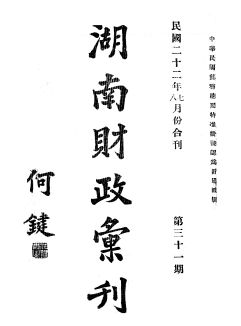 中華民國郵政總局特准掛號認爲新聞紙類
民國二十二年七八月份合刊
第三十一期
湖南財政彙刊
何鍵